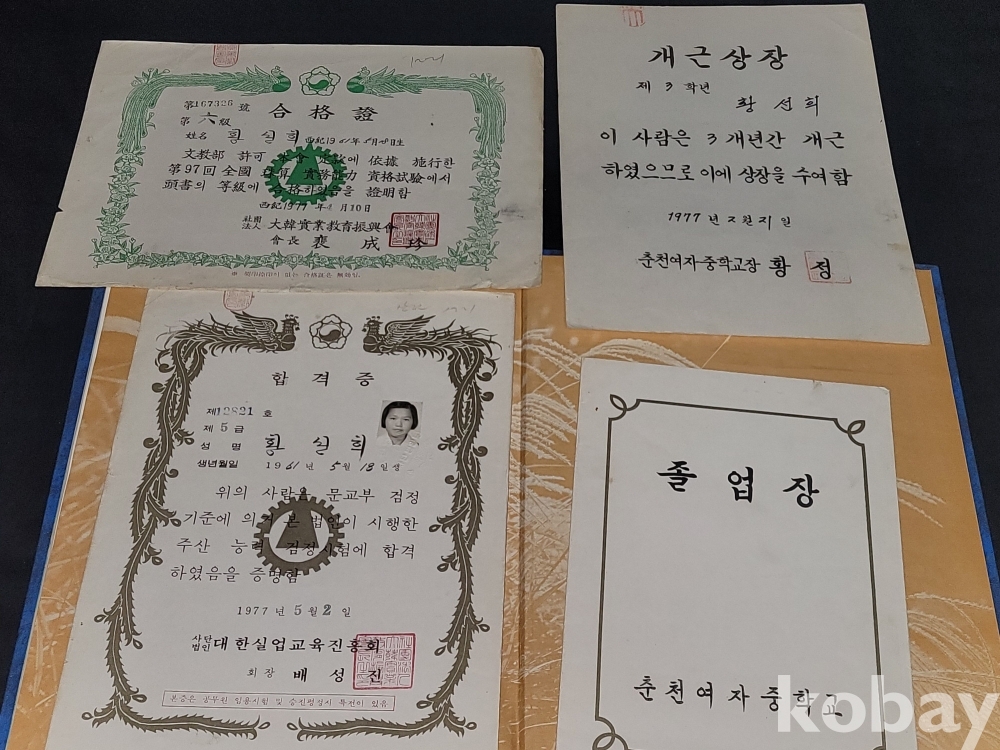 第167326號
合格證
第六級
姓名 황실희
文教部 許可
依據 施行한
第97回 全國
資格試驗에서
頭書의 等級에
證明함
西紀1977年
月10日
社團法人 大韓實業教育振興會
會長 裵成珍
개근상장
제 3 학년
황선희
이 사람은 3개년간 개근
하였으므로 이에 상장을 수여함
1977년 2월 일
춘천여자중학교장 황정
합격증
제12821호
제 5 급
성명 황실희
생년월일 1961년 5월 18일생
위의 사람은 문교부 검정
기준에 의거 본 법인이 시행한
주산 능력 검정시험에 합격
하였음을 증명함
1977년 5월 2일
사단법인 대한실업교육진흥회
회장 배성진
본증은 공무원 임용시험 및 승진평정시 특전이 있음
졸업장
춘천여자중학교
kobay